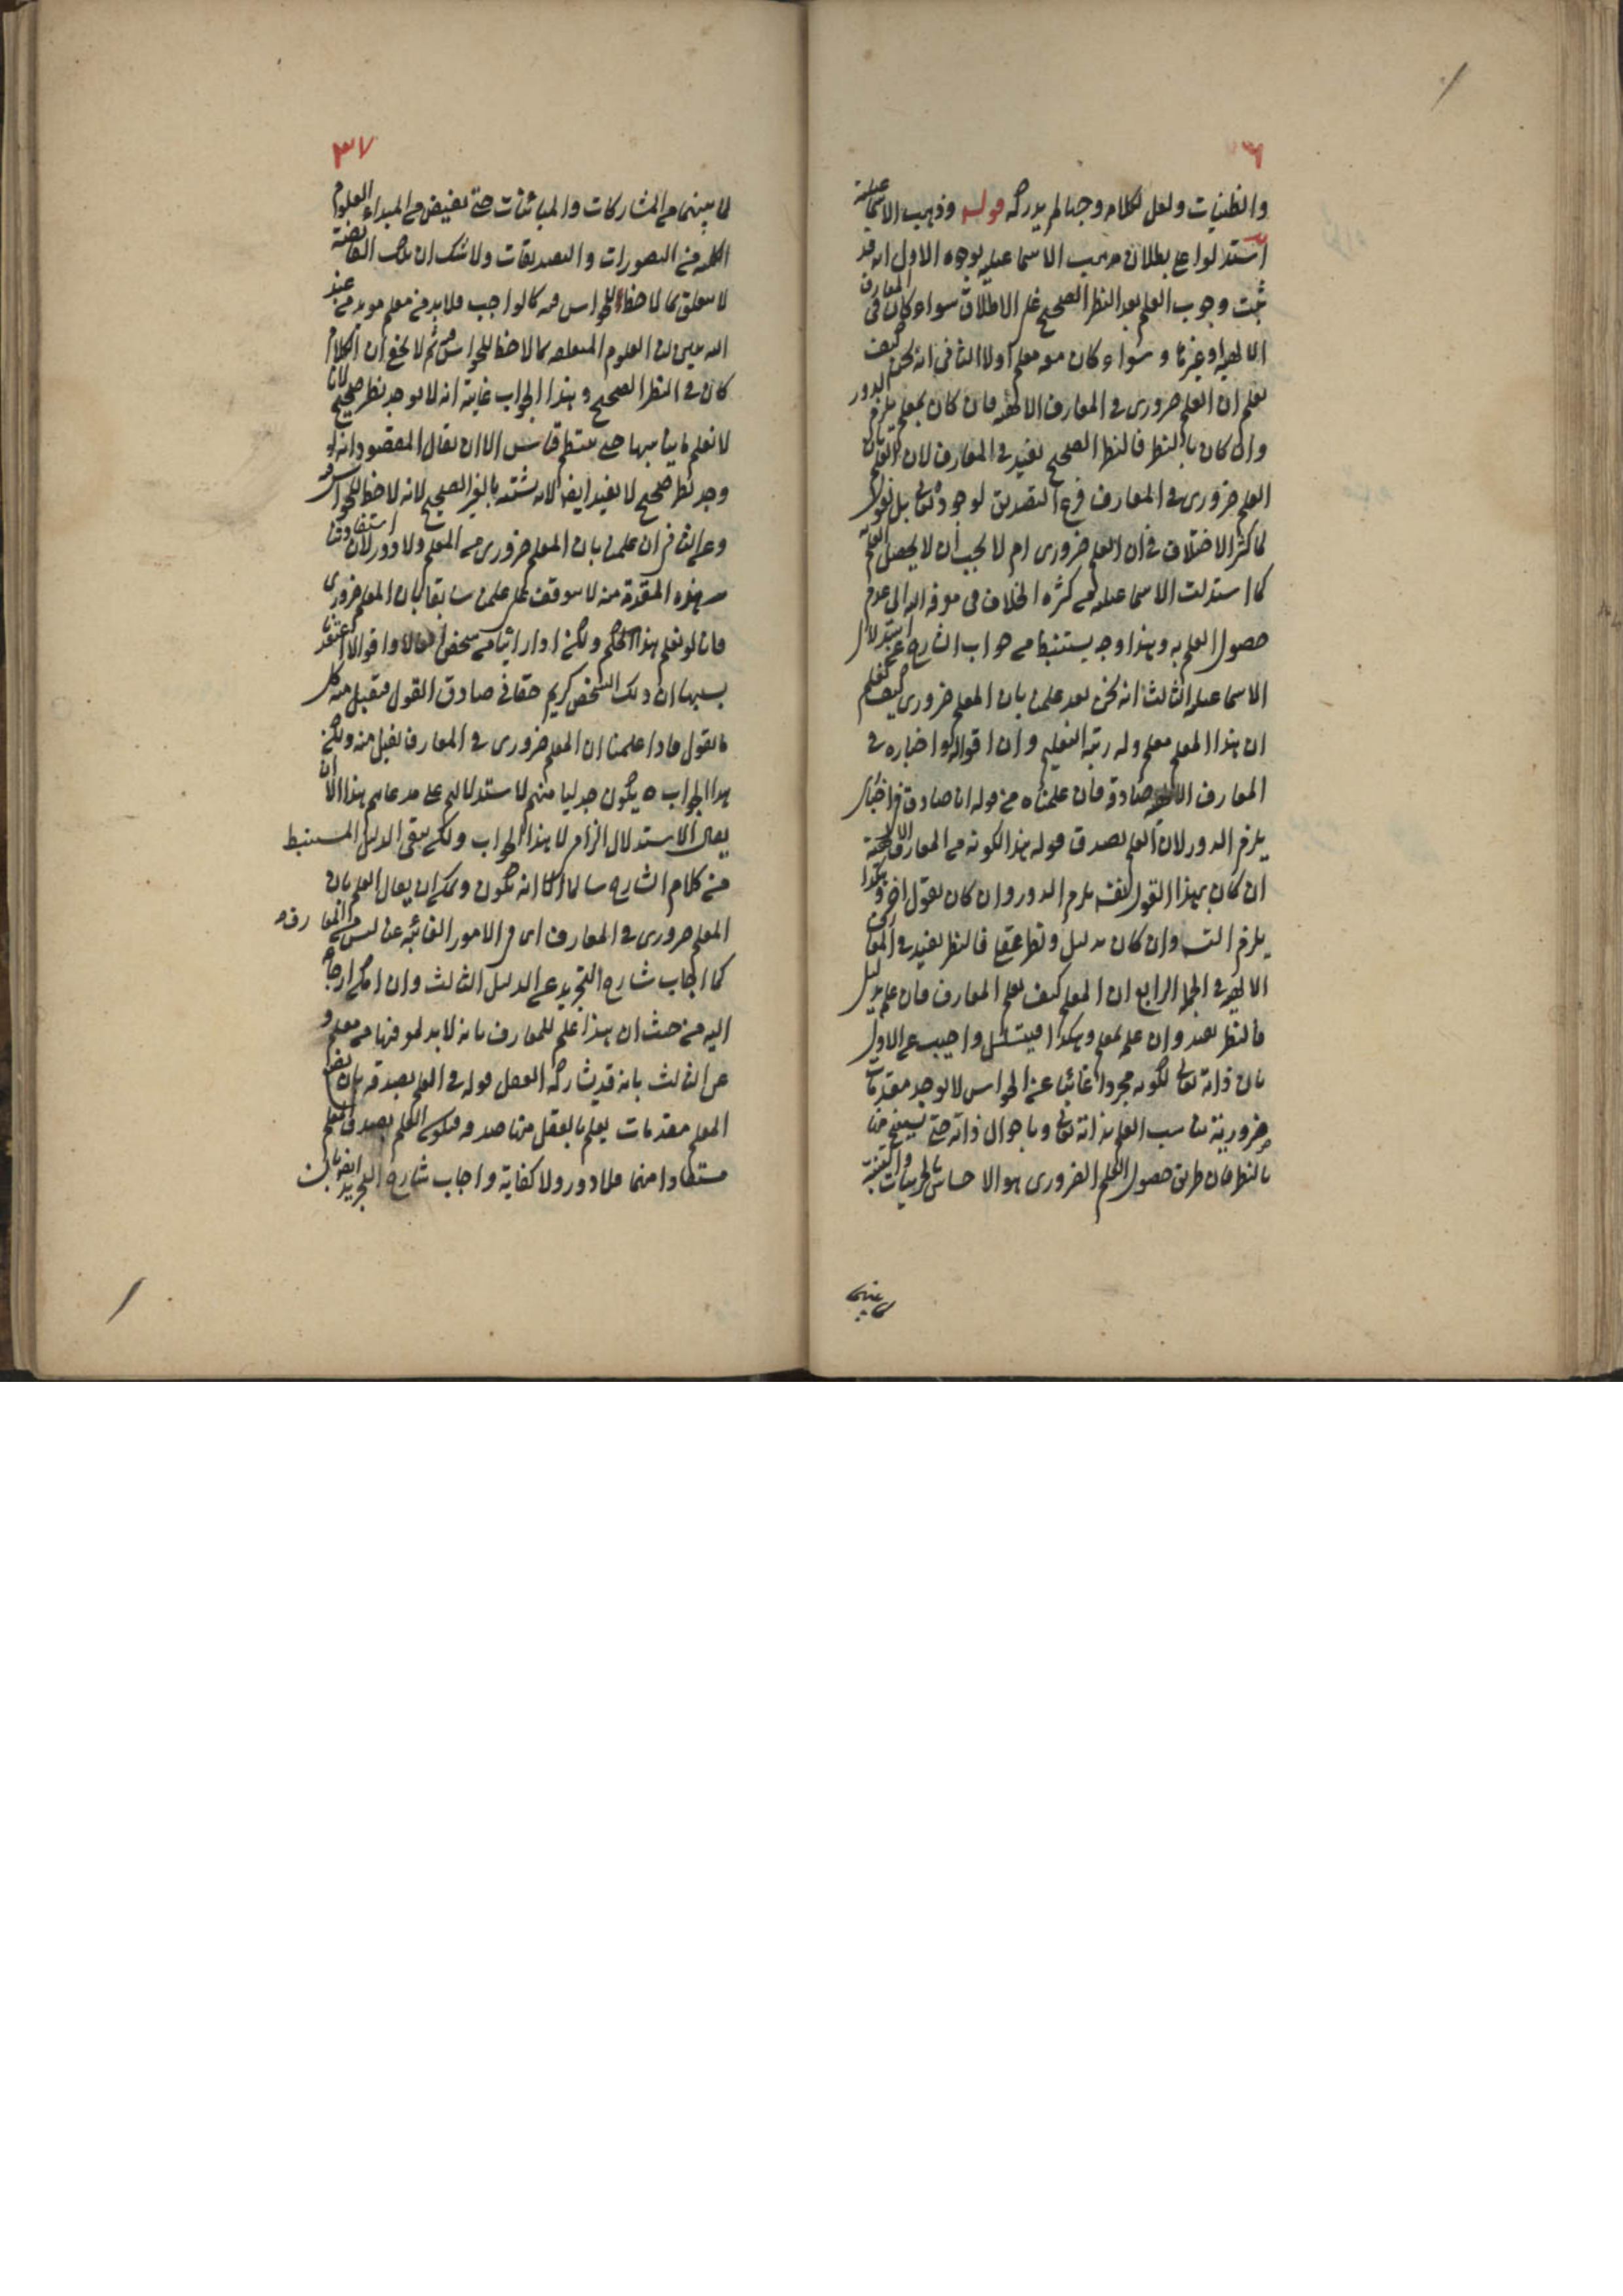 ٣٦
والظنيات ولعل لكلامه وجها لم يدركه قوله وذهب الاسماعيلية
استدلوا على بطلان مذهب الاسماعيلية بوجوه الاول انه قد
ثبت وجوب العلم بعد النظر الصحيح على الاطلاق سواء كان في المعارف
الالهية او غيرها وسواء كان معه معلم اولا الثاني انه كيف
نعلم ان المعلم ضروري في المعارف الالهية فان كان بمعلم يلزم الدور
وان كان بالنظر فالنظر الصحيح يفيد في المعارف لان العلم بان
المعلم ضروري في المعارف فرع التصديق لوجوده تعالى بل نقول
لما كثر الاختلاف في ان المعلم ضروري ام لا يجب ان لا يحصل العلم به
كما استدلت الاسماعيلية من كثرة الخلاف في معرفة الله الى عدم
حصول العلم به وهذا وجه يستنبط من جواب الشارح عن استدلال
الاسماعيلية الثالث انه نحن بعد علمنا بان المعلم ضروري كيف نعلم
ان هذا المعلم معلم وله رتبة التعليم وان اقواله واخباره في
المعارف الالهية صادقة فان علمناه من قوله انا صادق في اخباري
يلزم الدور لان العلم بصدق قوله هذا لكونه من المعارف الالهية
ان كان بهذا القول نفسه يلزم الدور وان كان بقول اخر وهكذا
يلزم التسـ وان كان بدليل ونظر عقلي فالنظر يفيد في المعارف
الالهية في الجملة الرابع ان المعلم كيف يعلم المعارف فان علم بدليل
فالنظر يفيد وان علم بمعلم وهكذا فيتسلسل واجيب عن الاول
بان ذاته تعالى لكونه مجردا غائبا عن الحواس لا يوجد مقدمات
ضرورية تناسب العلم بذاته تعالى وباحوال ذاته حتى يستنتج منها
بالنظر فان طريق حصول العلم الضروري هو الاحساس بالجزئيات والتنبه
لما بينهما
٣٧
لما بينهما من المشاركات والمباينات حتى تفيض من المبداء العلوم
الكلية من التصورات والتصديقات ولا شك ان تلك الفائضة
لا تتعلق بما لا حظ للحواس فيه كالواجب فلا بد من معلم مؤيد من عند
الله يبين لنا العلوم المتعلقة بما لا حظ للحواس فيه ثم لا يخفى ان الكلام
كان في النظر الصحيح وهذا الجواب غايته انه لا يوجد نظر صحيح لانا
لا نعلم ما يناسبها حتى ينتظم قياس الا ان يقال المقصود انه لو
وجد نظر صحيح لا يفيد ايضا لانه يشتبه بالغير الصحيح لانه لا حظ للحواس فيه
وعن الثاني ان علمنا بان المعلم ضروري من المعلم ولا دور لان استفادتنا
هذه المقدمة منه لا يتوقف على علمنا سابقا بان المعلم ضروري
فانا لو نعلم هذا الحكم ولكن اذا راينا من شخص افعالا واقوالا نعتقد
بسببها ان ذلك الشخص كريم حقاني صادق القول فنقبل منه كل
ما يقول فاذا علمنا ان المعلم ضروري في المعارف نقبل منه ولكن
هذا الجواب يكون جدليا منهم لاستدلالهم على مدعاهم هذا الا ان
يقال الاستدلال الزام لا هذا الجواب ولكن يبقى الدليل المستنبط
من كلام الشارح سالما كما انه يكون ويمكن ان يقال العلم بان
المعلم ضروري في المعارف اي في الامور الغائبة عن الحس ليس من المعارف
كما اجاب شارح التجريد عن الدليل الثالث وان امكن ارجاعه
اليه من حيث ان هذا علم للمعارف بانه لا بد لمعرفتها من معلم و
عن الثالث بانه قد يشاركه العقل قوله في العلم بصدقه بان يضع
المعلم مقدمات يعلم بالعقل منها صدقه فيكون العلم بصدق المعلم
مستفادا منهما فلا دور ولا كفاية واجاب شارح التجريد ايضا بان